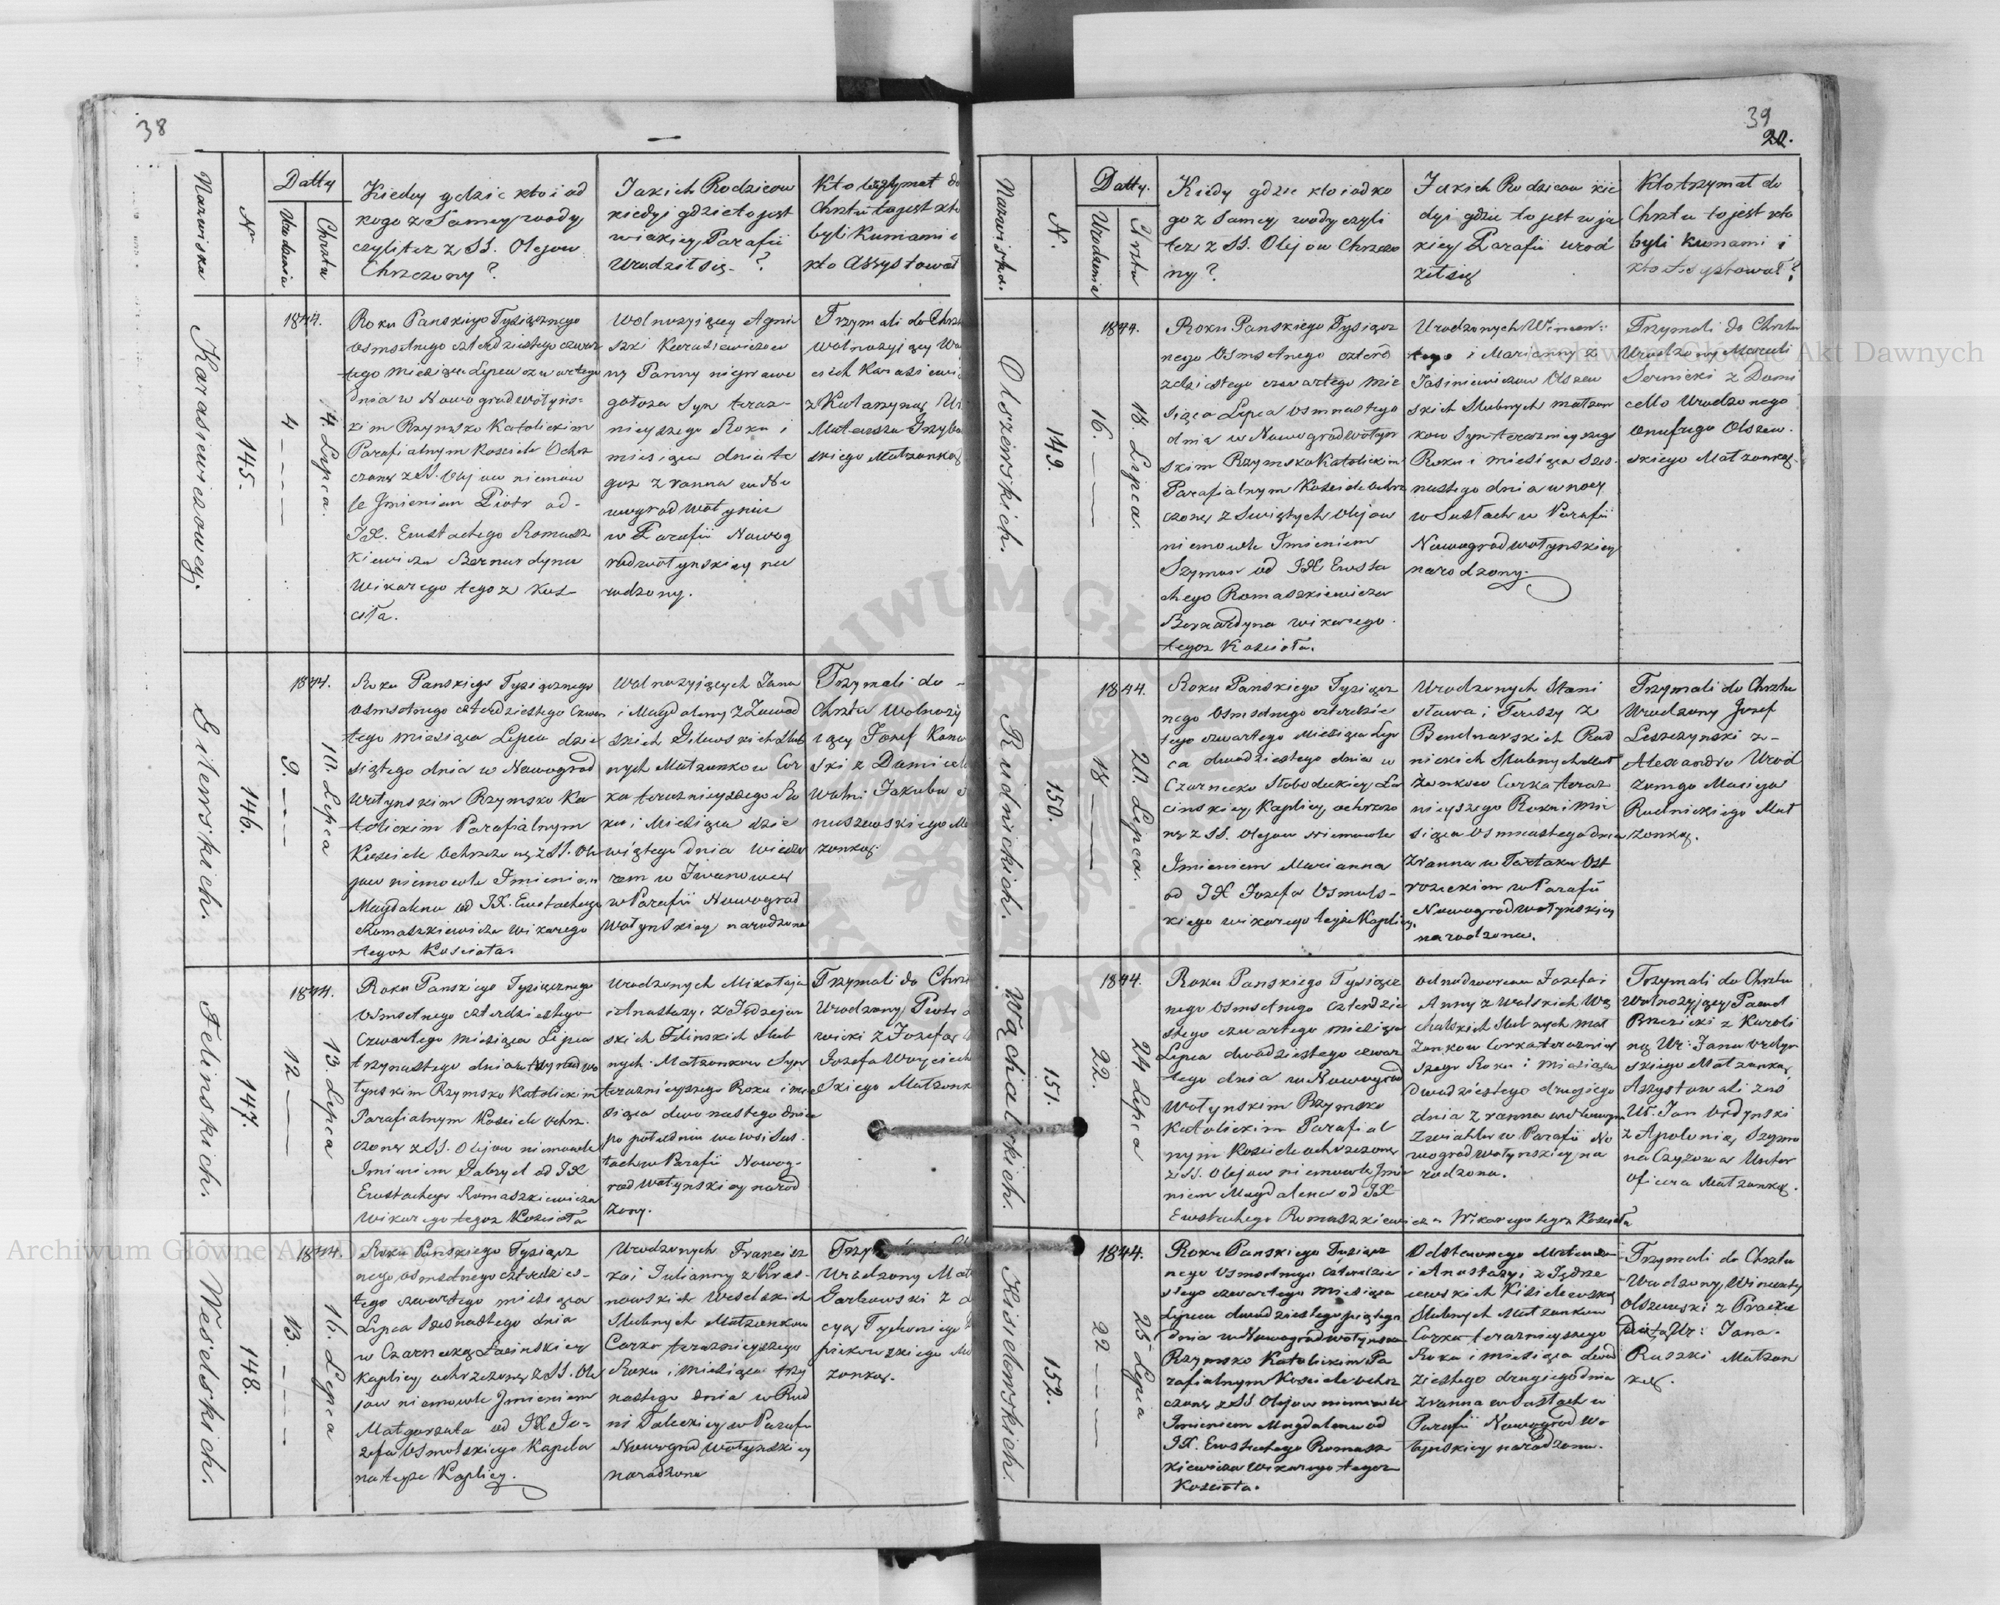 38
Nazwiska
N
Datty
Urodzenia
Chrztu
Kiedy gdzie kto i od
kogo z samey wody
czyli tez z SS. Olejow
Chrzczony?
Jakich Rodzicow
kiedy i gdzie to jest
w iakiey Parafii
Urodził się - ?
Kto trzymał do
Chrztu to jest kto
byli Kumami i
kto Assystował
Karasiewiczowey.
145.
1844.
4
4. Lipca.
Roku Panskiego Tysiącznego
osmsetnego czterdziestego czwar
tego miesiąca Lipca czwartego
dnia w Nowogradwołyns-
kim Rzymsko Katolickim
Parafialnym Kosciele Ochrz
czony z SS. Olejow niemow
le Jmieniem Piotr od-
JX. Eustachego Romasz
kiewicza Bernardyna
Wikarego tegoz Kos-
cioła.
Wolnozyjącey Agni
szki Karasiewiczow
ny Panny nieprawe
go łoza Syn teraz-
nieyszego Roku i
miesiąca dnia te
goz z ranna w No
wogradwołyniu
w Parafii Nowog
radwołynskiey na
rodzony.
Trzymali do Chrz
Wolnozyjący
Karasiewi
z Katarzyną
Mateusza Grzybo
skiego Matzonką
Gilewskich.
146.
1844.
9.
10. Lipca
Roku Panskiego Tysiącznego
osmsetnego czterdziestego Czwar
tego miesiąca Lipca dzie
siątego dnia w Nowograd
Wołynskim Rzymsko Ka
tolickim Parafialnym
Kosciele Ochrzczony z SS. Ole
jow niemowle Jmieniem
Magdalena od JX. Eustachego
Romaszkiewicza Wikarego
tegoz Kosciola.
Wolnozyjących Jana
i Magdaleny z Zawad
skich Gilewskich Slub
nych Matzonkow Cor
ka teraznieyszego Ro
ku i Miesiąca dzie
wiątego dnia wieczo
rem w Jwanowce
w Parafii Nowograd
Wołynskiey narodzona
Trzymali do -
Chrztu Wolnozy
iący Jozef
ski z
Jakuba
nuszewskiego
zonką.
Felinskich.
147.
1844.
12
13 Lipca
Roku Panskiego Tysiącznego
osmsetnego czterdziestego
Czwartego miesiąca Lipca
trzynastego dnia w Nowogradwo
łynskim Rzymsko Katolickim
Parafialnym Kosciele ochrz-
czony z SS. Olejow niemowle
Jmieniem Gabryel od JX
Eustachego Romaszkiewicza
Wikarego tegoz Kosciola
Urodzonych Mikołaja
i Anastazyi z Jędrzejow
skich Felinskich Slub
nych Matzonkow Syn
teraznieyszego Roku i mie
siąca dwonastego dnia
po południu we wsi Sus-
łach w Parafii Nowog-
radwołynskiey narod
zony.
Trzymali do Chrz
Urodzony Piotr
wicki z Jozefą
Jozefa Woyciech
skiego Matzonk
Weselskich.
148.
1844.
13.
16. Lipca
Roku Panskiego Tysiącz
nego osmsetnego czterdzies-
tego czwartego miesiąca
Lipca Szesnastego dnia
w Czarneckiey Łacinskiey
kaplicy ochrzczony z SS. Ole
jow niemowle Jmieniem
Małgorzata od JX Jo-
zefa Osmolskiego Kapela
na teyze Kaplicy.
Urodzonych Francisz
ka i Julianny z Kras-
nowskich Weselskich
Slubnych Matzonkow
Corka teraznieyszego
Roku i miesiąca trzy
nastego dnia w Rud
ni w Parafii
Nowogradwołynskiey
narodzona
Urodzony
Garbowski z
zonką.
39
20.
Nazwiska.
N.
Datty.
Urodzenia
Chrztu
Kiedy gdzie kto i od ko
go z samey wody czyli
tez z SS. Olejow Chrzczo
ny?
Jakich Rodzicow kie
dy i gdzie to jest w ja
kiey Parafii urod
ził się
Kto trzymał do
Chrztu to jest kto
byli kumami i
kto Assystował?
Olszewskich.
149.
1844.
16.
18. Lipca.
Roku Panskiego Tysiącz
nego Osmsetnego czterd
ziestego czwartego mie
siąca Lipca osmnastego
dnia w Nowogradwołyn
skim Rzymsko Katolickim
Parafialnym Kosciele ochrz
czony z Swiętych Olejow
niemowle Jmieniem
Szymon od JX Eusta
chego Romaszkiewicza
Bernardyna wikarego
tegoz Kosciola.
Urodzonych Wincen:
tego i Maryanny z
Jasiniewiczow Olszew
skich Slubnych matzon
kow Syn teraznieyszego
Roku i miesiąca szes
nastego dnia w nocy
w Susłach w Parafii
Nowogradwołynskiey
narodzony.
Trzymali do Chrztu
Urodzony Marceli
Sernicki z Domi
cellą Urodzonego
Onufrego Olszew-
skiego Matzonką.
Rudnickich.
150.
1844.
18
20. Lipca.
Roku Panskiego Tysiącz
nego osmsetnego czterdzie
stego czwartego Miesiąca Lip
ca dwudziestego dnia w
Czarnecko Słobodzkiey Ła
cinskiey Kaplicy ochrzczo
ny z SS. Olejow niemowle
Jmieniem Marianna
od JX Jozefa Osmols-
kiego wikarego teyze Kaplicy.
Urodzonych Stani
sława i Teressy z
Bendnarskich Rud
nickich Slubnych Mat
zonkow Corka teraz
nieyszego Roku i Mie
siąca Osmnastego dnia
z ranna w Tartaku Ost
rozeckim w Parafii
Nowogradwołynskiey
narodzona.
Trzymali do Chrztu
Urodzony Jozef
Leszczynski z-
Alexandrą Urod
zonego Macieja
Rudnickiego Mat
zonką.
Wąchalskich.
151.
1844.
22.
24 Lipca
Roku Panskiego Tysiącz
nego osmsetnego Czterdzie
stego czwartego miesiąca
Lipca dwudziestego czwar
tego dnia w Nowograd
Wołynskim Rzymsko
Katolickim Parafial
nym Kosciele ochrzczony
z SS. Olejow niemowle Jmie
niem Magdalena od JX
Eustachego Romaszkiewicza Wikarego tegoz Kosciola
Odnodworcow Jozefa i
Anny z Wolskich Wą
chalskich Slubnych mat
zonkow Corka teraźniey
szego Roku i miesiąca
dwudziestego drugiego
dnia z ranna w Nowogra
Zwiahlu w Parafii No
wogradwołynskiey na
rodzona.
Trzymali do Chrztu
Wolnozyjący Paweł
Brzezicki z Karoli
ną Ur: Jana Ordyn
skiego Matzonką
Assystowali zas
Ur. Jan Ordynski
z Apolonią Szymo
na Czyzowa Unter
oficera Matzonką.
Kisielewskich.
152.
1844.
22
25 Lipca
Roku Panskiego Tysiącz
nego osmsetnego Czterdzie
stego czwartego miesiąca
Lipca dwudziestego piątego
dnia w Nowogradwołynskim
Rzymsko Katolickim Pa
rafialnym Kosciele ochrz
czony z SS Olejow niemowle
Jmieniem Magdalena od
JX. Eustachego Romasz
kiewicza Wikarego tegoz
Kosciola.
Odstawnego
i Anastazyi z Jędrze
iewskich Kisielewskich
Slubnych Matzonkow
Corka teraznieyszego
Roku i miesiąca dwud
ziestego drugiego dnia
z ranna w Susłach w
Parafii Nowogradwo
łynskiey narodzona.
Trzymali do Chrztu
Urodzony Wincenty
Olszewski z Prakse
dą Ur: Jana
Ruszki Matzon
ką.
Archiwum Główne Akt Dawnych
Archiwum Główne Akt Dawnych